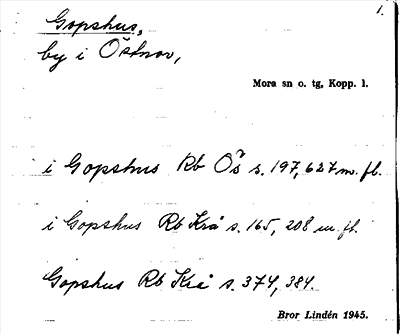 1.
Gopshus,
by i Östnor,
Mora sn o. tg, Kopp. l.
i Gopshus Rb Ös s. 197, 627 m. fl.
i Gopshus Rb Krå s. 165, 208 m. fl.
Gopshus Rb Krå s. 374, 384.
Bror Lindén 1945.